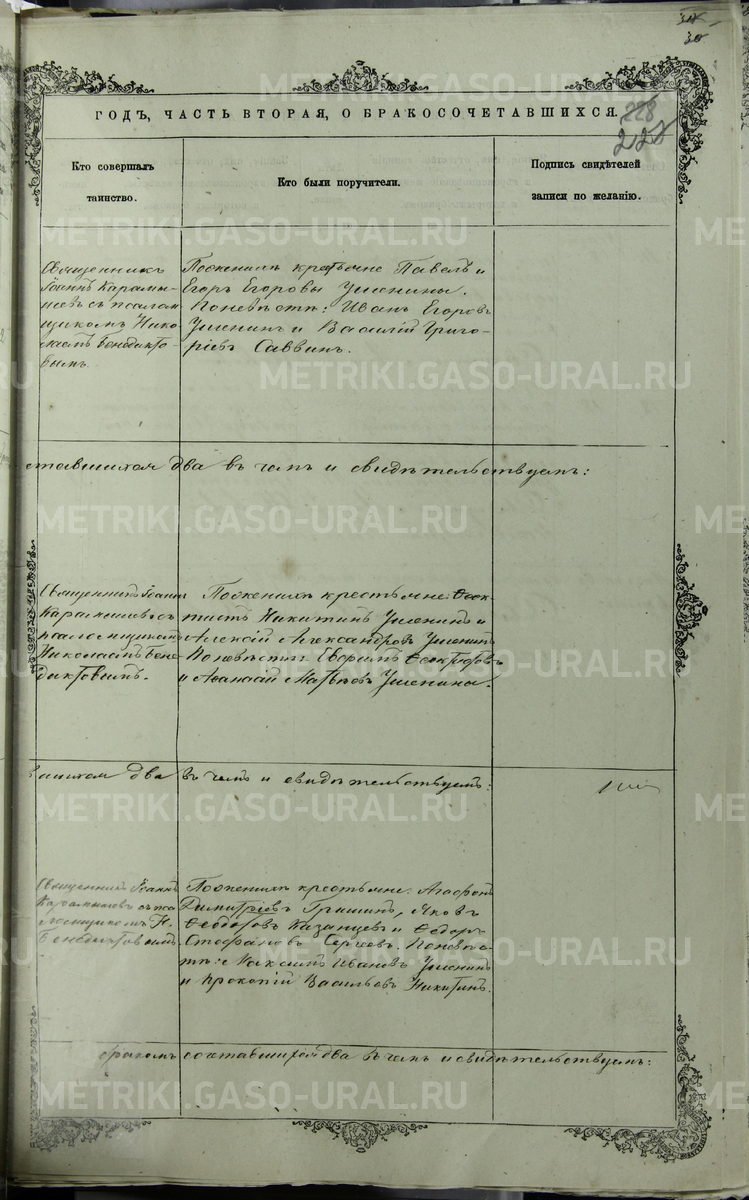 30
ГОДЪ, ЧАСТЬ ВТОРАЯ, О БРАКОСОЧЕТАВШИХСЯ.
228
Кто совершалъ
таинство.
Кто были поручители.
Подпись свидѣтелей
записи по желанію.
Священникъ
Іоаннъ Карамы-
шевъ съ псалом
щикомъ Нико
лаемъ Бенедикто-
вымъ.
По женихѣ крестьяне Павелъ и
Егоръ Егоровы Умянины.
По невѣстѣ: Иванъ Егоровъ
Умянинъ и Василій Григо-
ріевъ Саввинъ.
тавшихся два въ чемъ и свидѣтельствуемъ:
Священникъ Іоаннъ
Карамышевъ съ
псаломщикомъ
Николаемъ Бене
диктовымъ.
По женихѣ крестьяне: Ѳеок-
тистъ Никитинъ Умянинъ и
Алексѣй Александровъ Умянинъ
По невѣстѣ: Ефремъ
и Аѳанасій Матвѣевъ Умянины.
шихся два въ чемъ и свидѣтельствуемъ:
Священникъ Іоаннъ
Карамышевъ съ пса
ломщикомъ Н.
Бенедиктовымъ
По женихѣ крестьяне: Агафонъ
Димитріевъ Гришинъ, Яковъ
Ѳедотовъ Казанцевъ и Ѳедоръ
Стефановъ Сергеевъ. По невѣс-
тѣ: Максимъ Ивановъ Умянинъ
и Прокопій Васильевъ Никитинъ.
бракомъ сочетавшихся два въ чемъ и свидѣтельствуемъ:
METRIKI.GASO-URAL.RU